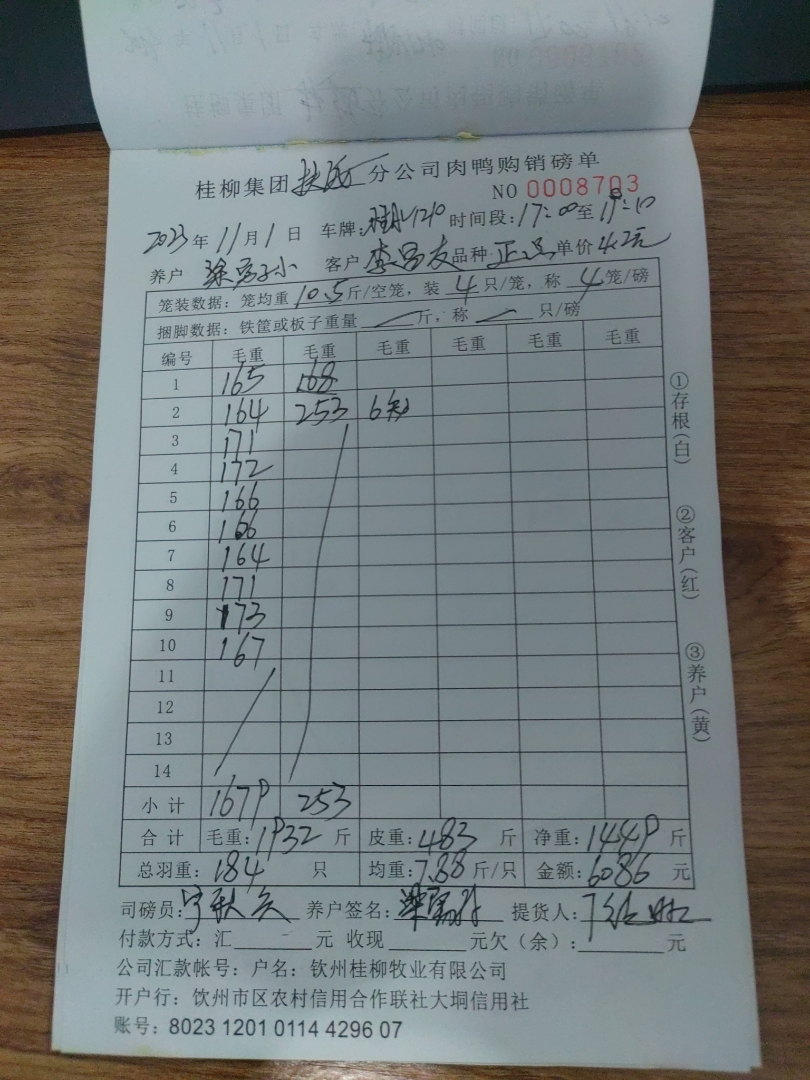 桂柳集团 分公司肉鸭购销磅单
NO 0008703
2023年11月1日 车牌: 1210 时间段:17:00至
养户 客户 李昌友 品种 正品 单价 4.2元
笼装数据：笼均重 10.5 斤/空笼，装 4 只/笼，称 4 笼/磅
捆脚数据：铁筐或板子重量 斤，称 只/磅
编号 毛重 毛重 毛重 毛重 毛重 毛重
1 165 168
2 164 253 6笼
3 171
4 172
5 166
6 166
7 164
8 171
9 173
10 167
11
12
13
14
小计 1679 253
合计 毛重：1932 斤 皮重：483 斤 净重：1449 斤
总羽重：184 只 均重：7.88 斤/只 金额：6086 元
司磅员： 养户签名： 提货人：
付款方式：汇 元 收现 元欠（余）： 元
公司汇款帐号：户名：钦州桂柳牧业有限公司
开户行：饮州市区农村信用合作联社大垌信用社
账号：8023 1201 0114 4296 07
①存根(白)
②客户(红)
③养户(黄)